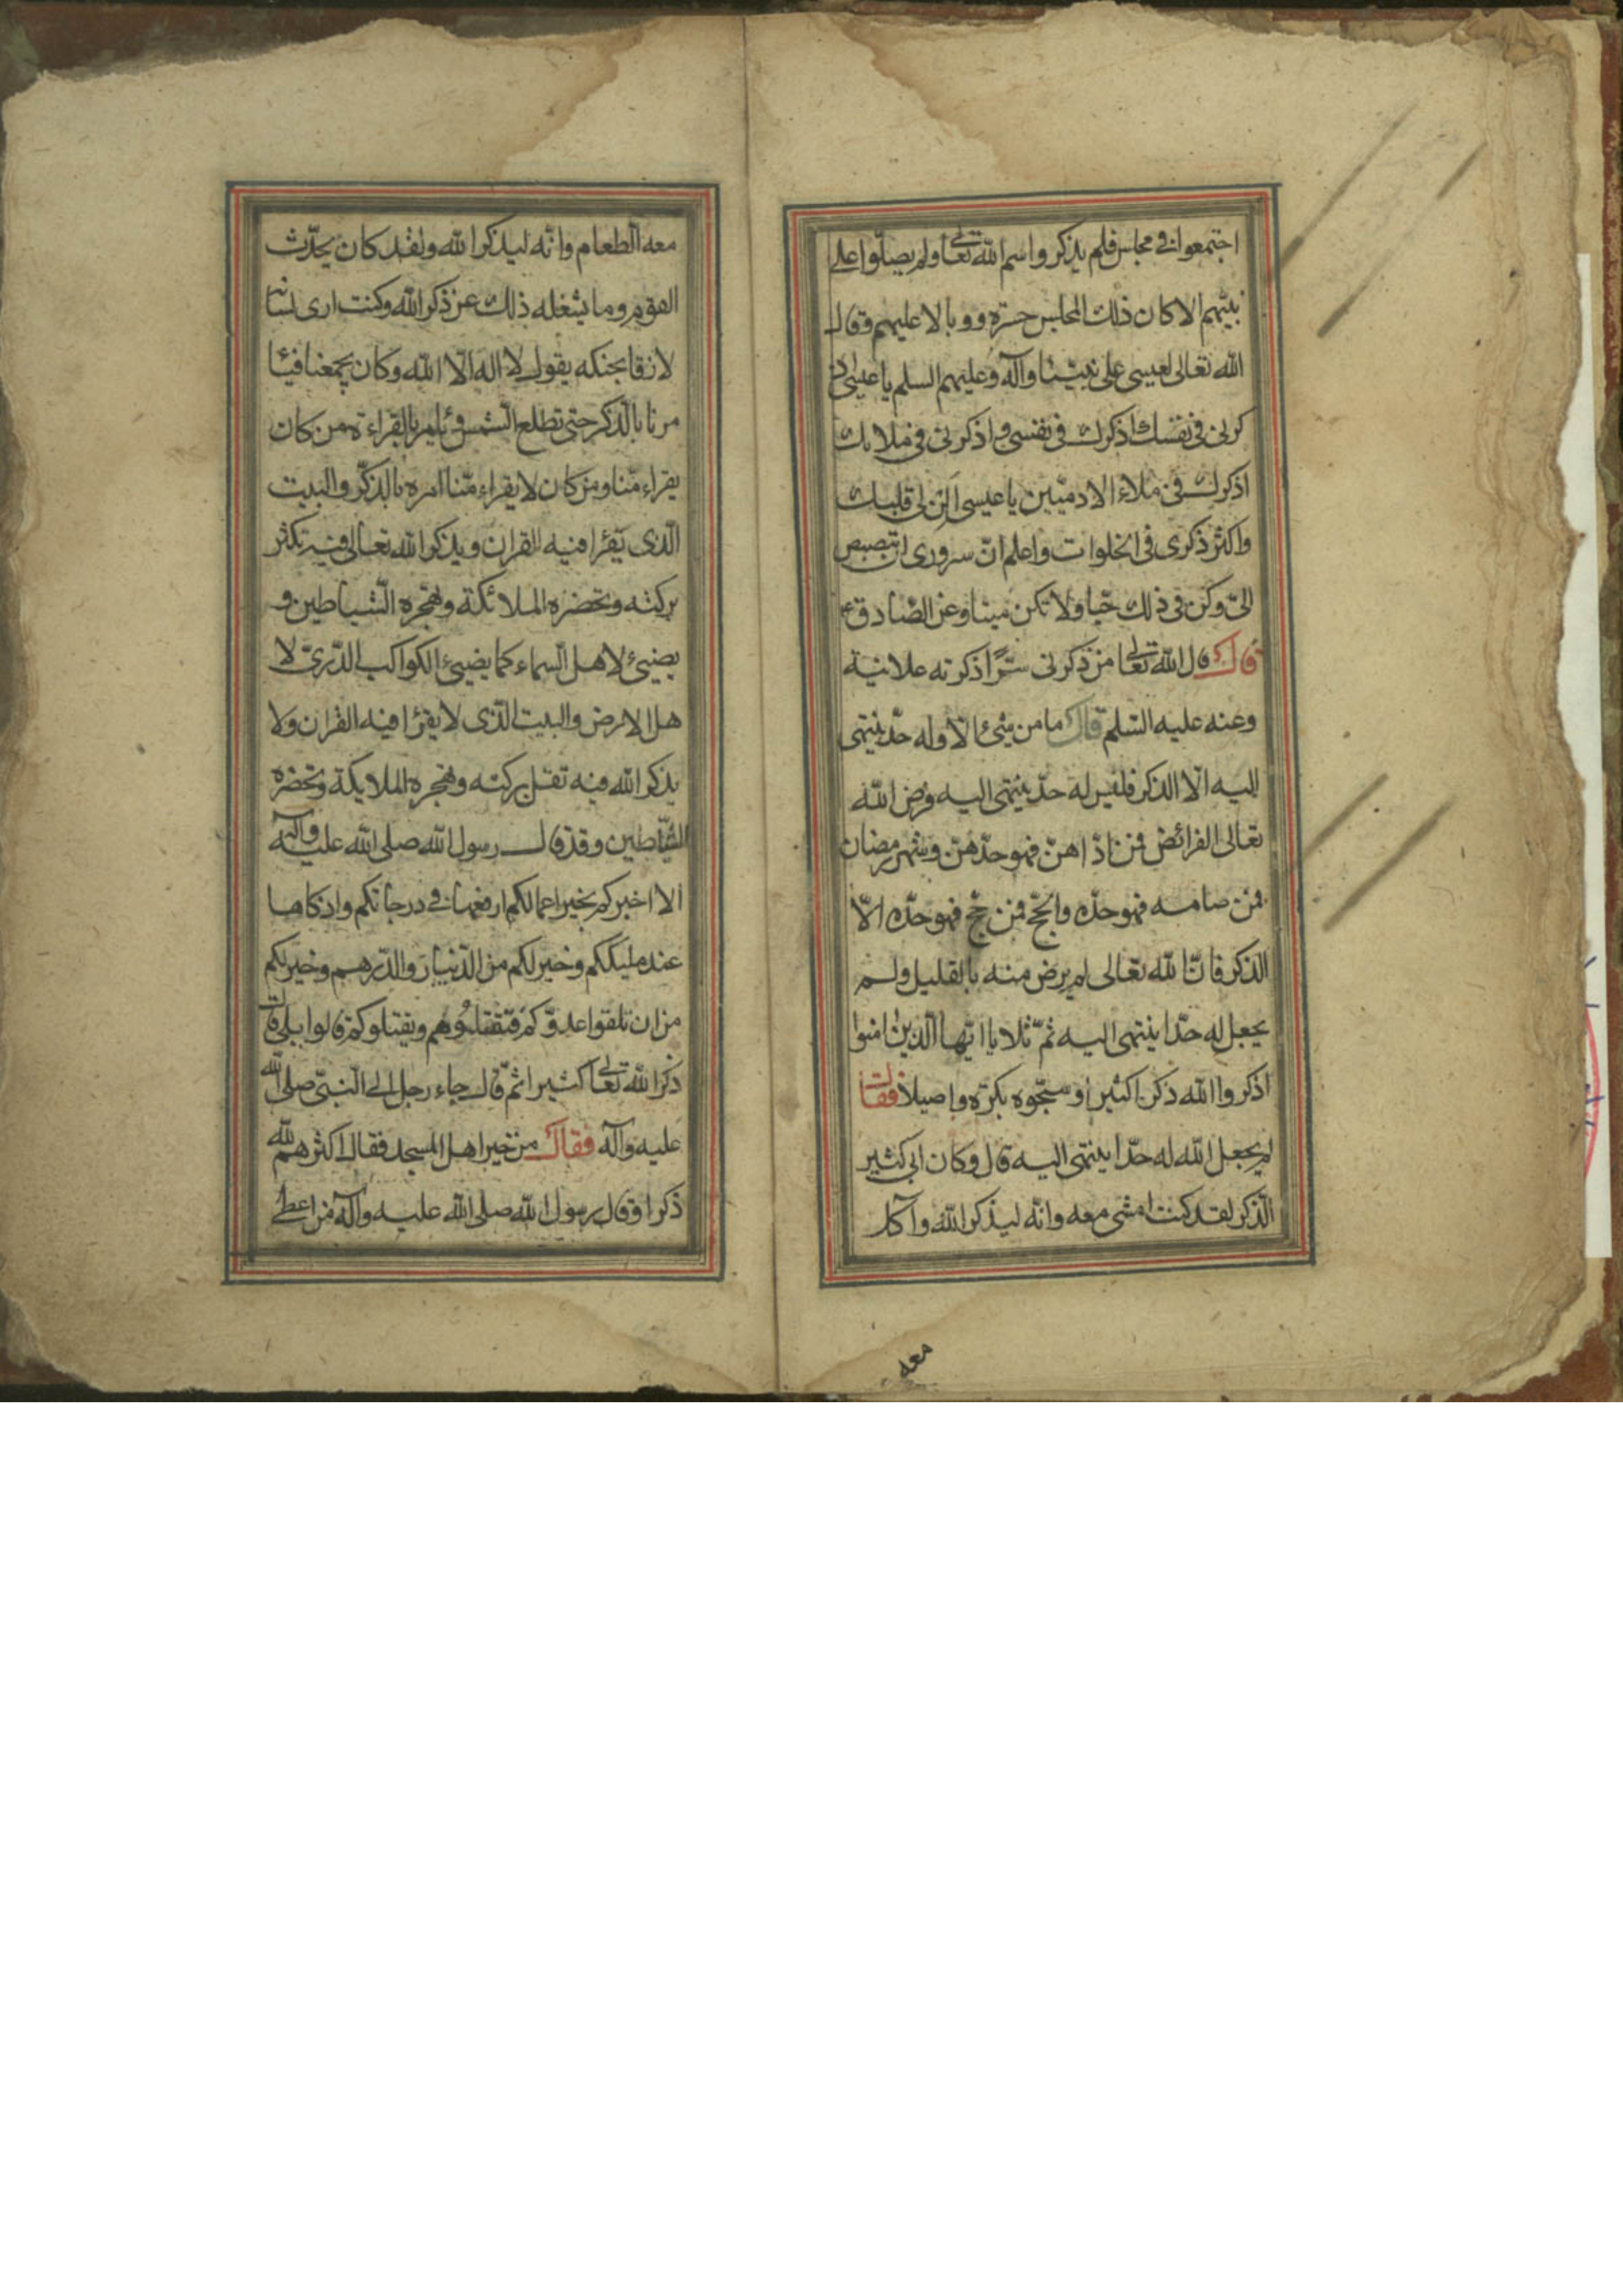 اجتمعوا فى مجلس فلم يذكروا اسم الله تعالى ولم يصلّوا على
نبيّهم الا كان ذلك المجلس حسرة ووبالا عليهم وقال
الله تعالى لعيسى على نبيّنا وآله وعليهم السلم يا عيسى اذ
كرنى فى نفسك اذكرك فى نفسى واذكرنى فى ملائك
اذكرك فى ملاء الادميّين يا عيسى الن لى قلبك
واكثر ذكرى فى الخلوات واعلم انّ سرورى ان تبصبص
الىّ وكن فى ذلك حيّا ولا تكن ميتا وعن الصّادق ع
قال قال الله تعالى من ذكرنى سرّا ذكرته علانية
وعنه عليه السّلم قال ما من شئ الّا وله حدّ ينتهى
اليه الّا الذكر فليس له حدّ ينتهى اليه فرض الله
تعالى الفرائض فمن ادّاهنّ فهو حدّهنّ وشهر رمضان
فمن صامه فهو حدّه والحجّ فمن حجّ فهو حدّه الّا
الذكر فانّ الله تعالى لم يرض منه بالقليل ولم
يجعل له حدّا ينتهى اليه ثمّ تلا يا ايّها الّذين امنوا
اذكروا الله ذكرا كثيرا وسبّحوه بكرة واصيلا فقال
لم يجعل الله له حدّا ينتهى اليه قال وكان ابى كثير
الذّكر لقد كنت امشى معه وانّه ليذكر الله وآكل
معه
معه الطعام وانّه ليذكر الله ولقد كان يحدّث
القوم وما يشغله ذلك عن ذكر الله وكنت ارى لسانه
لازقا بحنكه يقول لا اله الّا الله وكان يجمعنا فيئا
مرنا بالذّكر حتى تطلع الشّمس ويأمر بالقراءة من كان
يقراء منّا ومن كان لا يقراء منّا امره بالذكر والبيت
الّذى يقرٔا فيه القران ويذكر الله تعالى فيه تكثر
بركته وتحضره الملائكة وتهجره الشّياطين و
يضيئ لاهل السّماء كما يضيئ الكواكب الدّرىّ لا
هل الارض والبيت الّذى لا يقرٔا فيه القران ولا
يذكر الله فيه تقلّ بركته وتهجره الملايكة وتحضره
الشّياطين وقد قال رسول الله صلى الله عليه وآله
الا اخبركم بخير اعمالكم ارفعها فى درجاتكم وازكاها
عند مليككم وخير لكم من الدّينار والدّرهم وخير لكم
من ان تلقوا عدوّكم فتقتلوهم ويقتلوكم قالوا بلى قال
ذكر الله تعالى كثيرا ثمّ قال جاء رجل الى النّبىّ صلى الله
عليه وآله فقال من خير اهل المسجد فقال اكثرهم لله
ذكرا وقال رسول الله صلى الله عليه وآله من اعطى